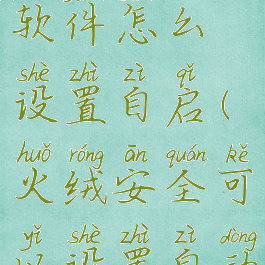 软件怎么
shè zhì zì qǐ
设置自启(
huǒ róng ān quán kě
火绒安全可
yǐ shè zhì zì dòng
以设置自动